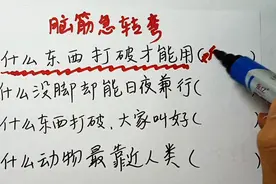 脑筋急转弯
什么东西打破才能用(
什么没脚却能日夜兼行(
什么东西打破,大家叫好(
什么动物最靠近人类(      )